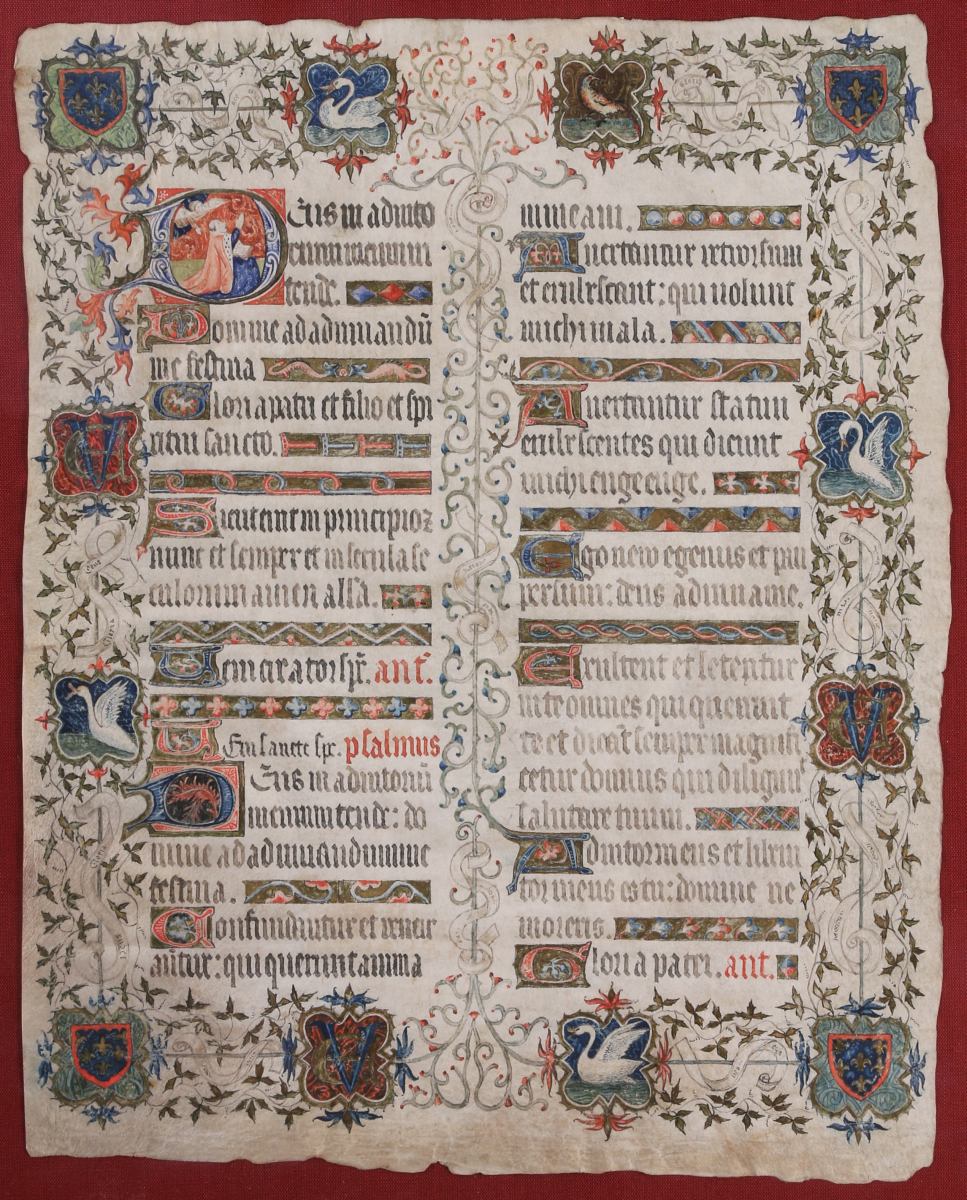 Deus in adiuto
rium meum in
tende.
Domine ad adiuuandū
me festina
Gloria patri et filio et spi
ritui sancto.
Sicut erat in principio ꝛ
nunc et semper et in secula se
culorum amen alla.
Ueni creator spc. ant.
Ueni sancte spc. psalmus
Deus in adiutoriū
meum intende: do
mine ad adiuuandum me
festina.
Confundantur et reuere
antur: qui querunt anima
m meam.
Auertantur retrorsum
et erubescant: qui uolunt
michi mala.
Auertantur statim
erubescentes qui dicunt
michi euge euge.
Ego uero egenus et pau
per sum: deus adiuua me.
Exultent et letentur
in te omnes qui querunt
te et dicāt semper magnifi
cetur dominus qui diligunt
salutare tuum.
Adiutor meus et libera
tor meus es tu: domine ne
moreris.
Gloria patri. ant.